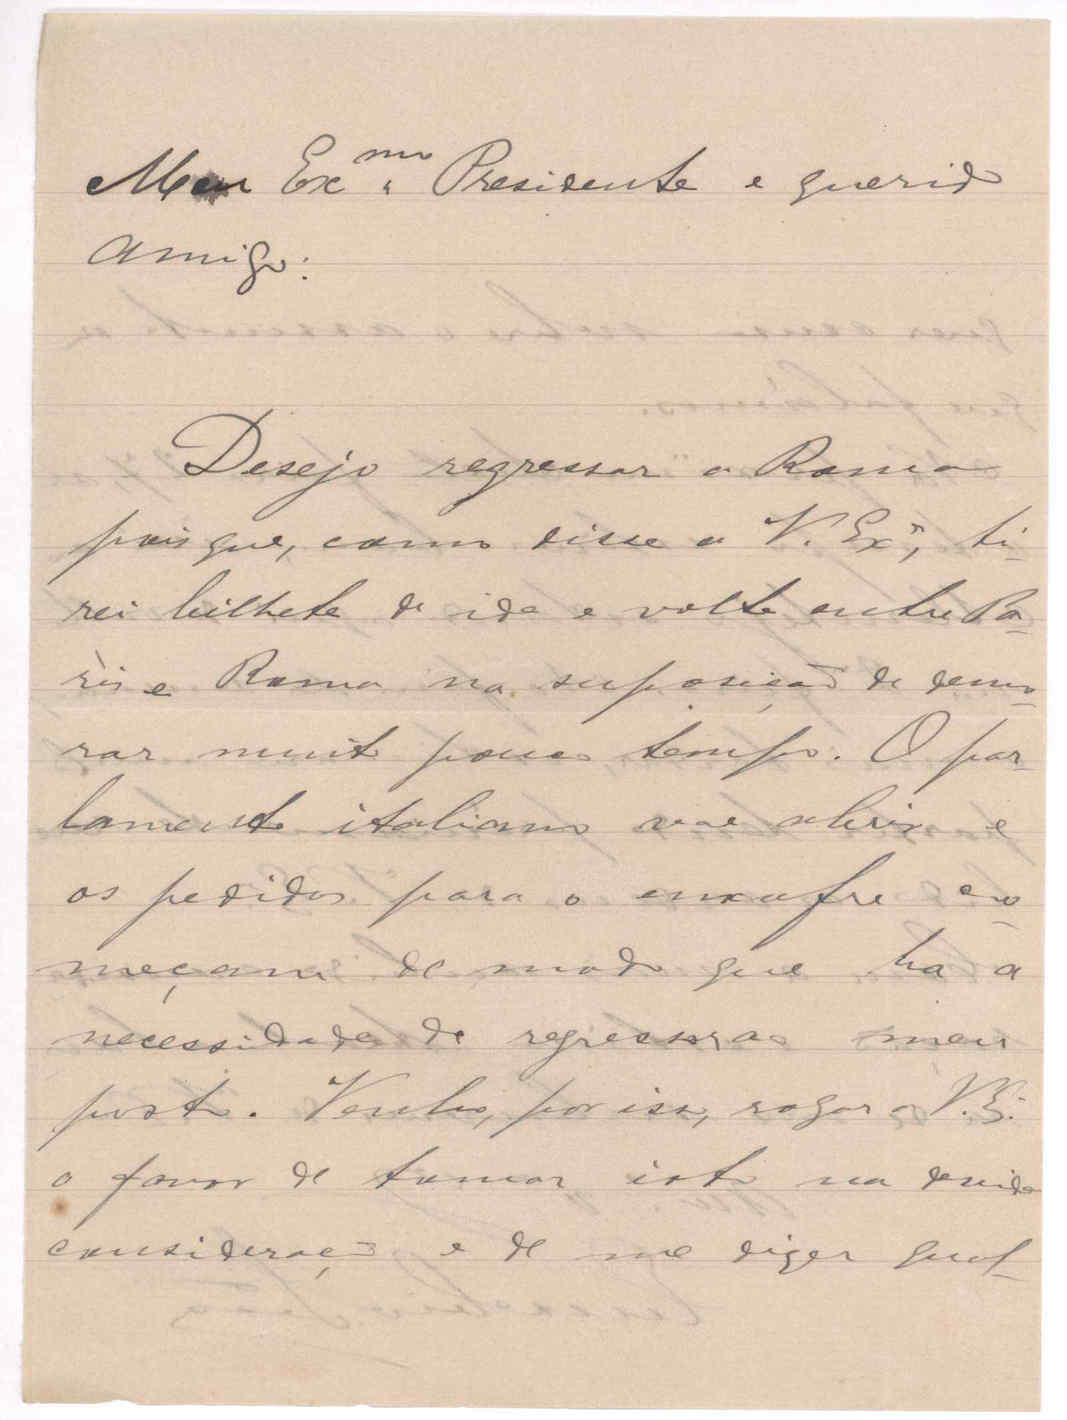 Meu Ex.mo Presidente e querido
amigo:
Desejo regressar a Roma
pois que, como disse a V. Exª, ti-
rei bilhete de ida e volta entre Pa-
ris e Roma na suposição de demo-
rar muito pouco tempo. O par-
lamento italiano vae abrir e
os pedidos para o enxofre co-
meçam de modo que ha a
necessidade de regressar ao meu
posto. Venho, por isso, rogar a V. E.
o favor de tomar isto na devida
consideração e de me dizer qual-